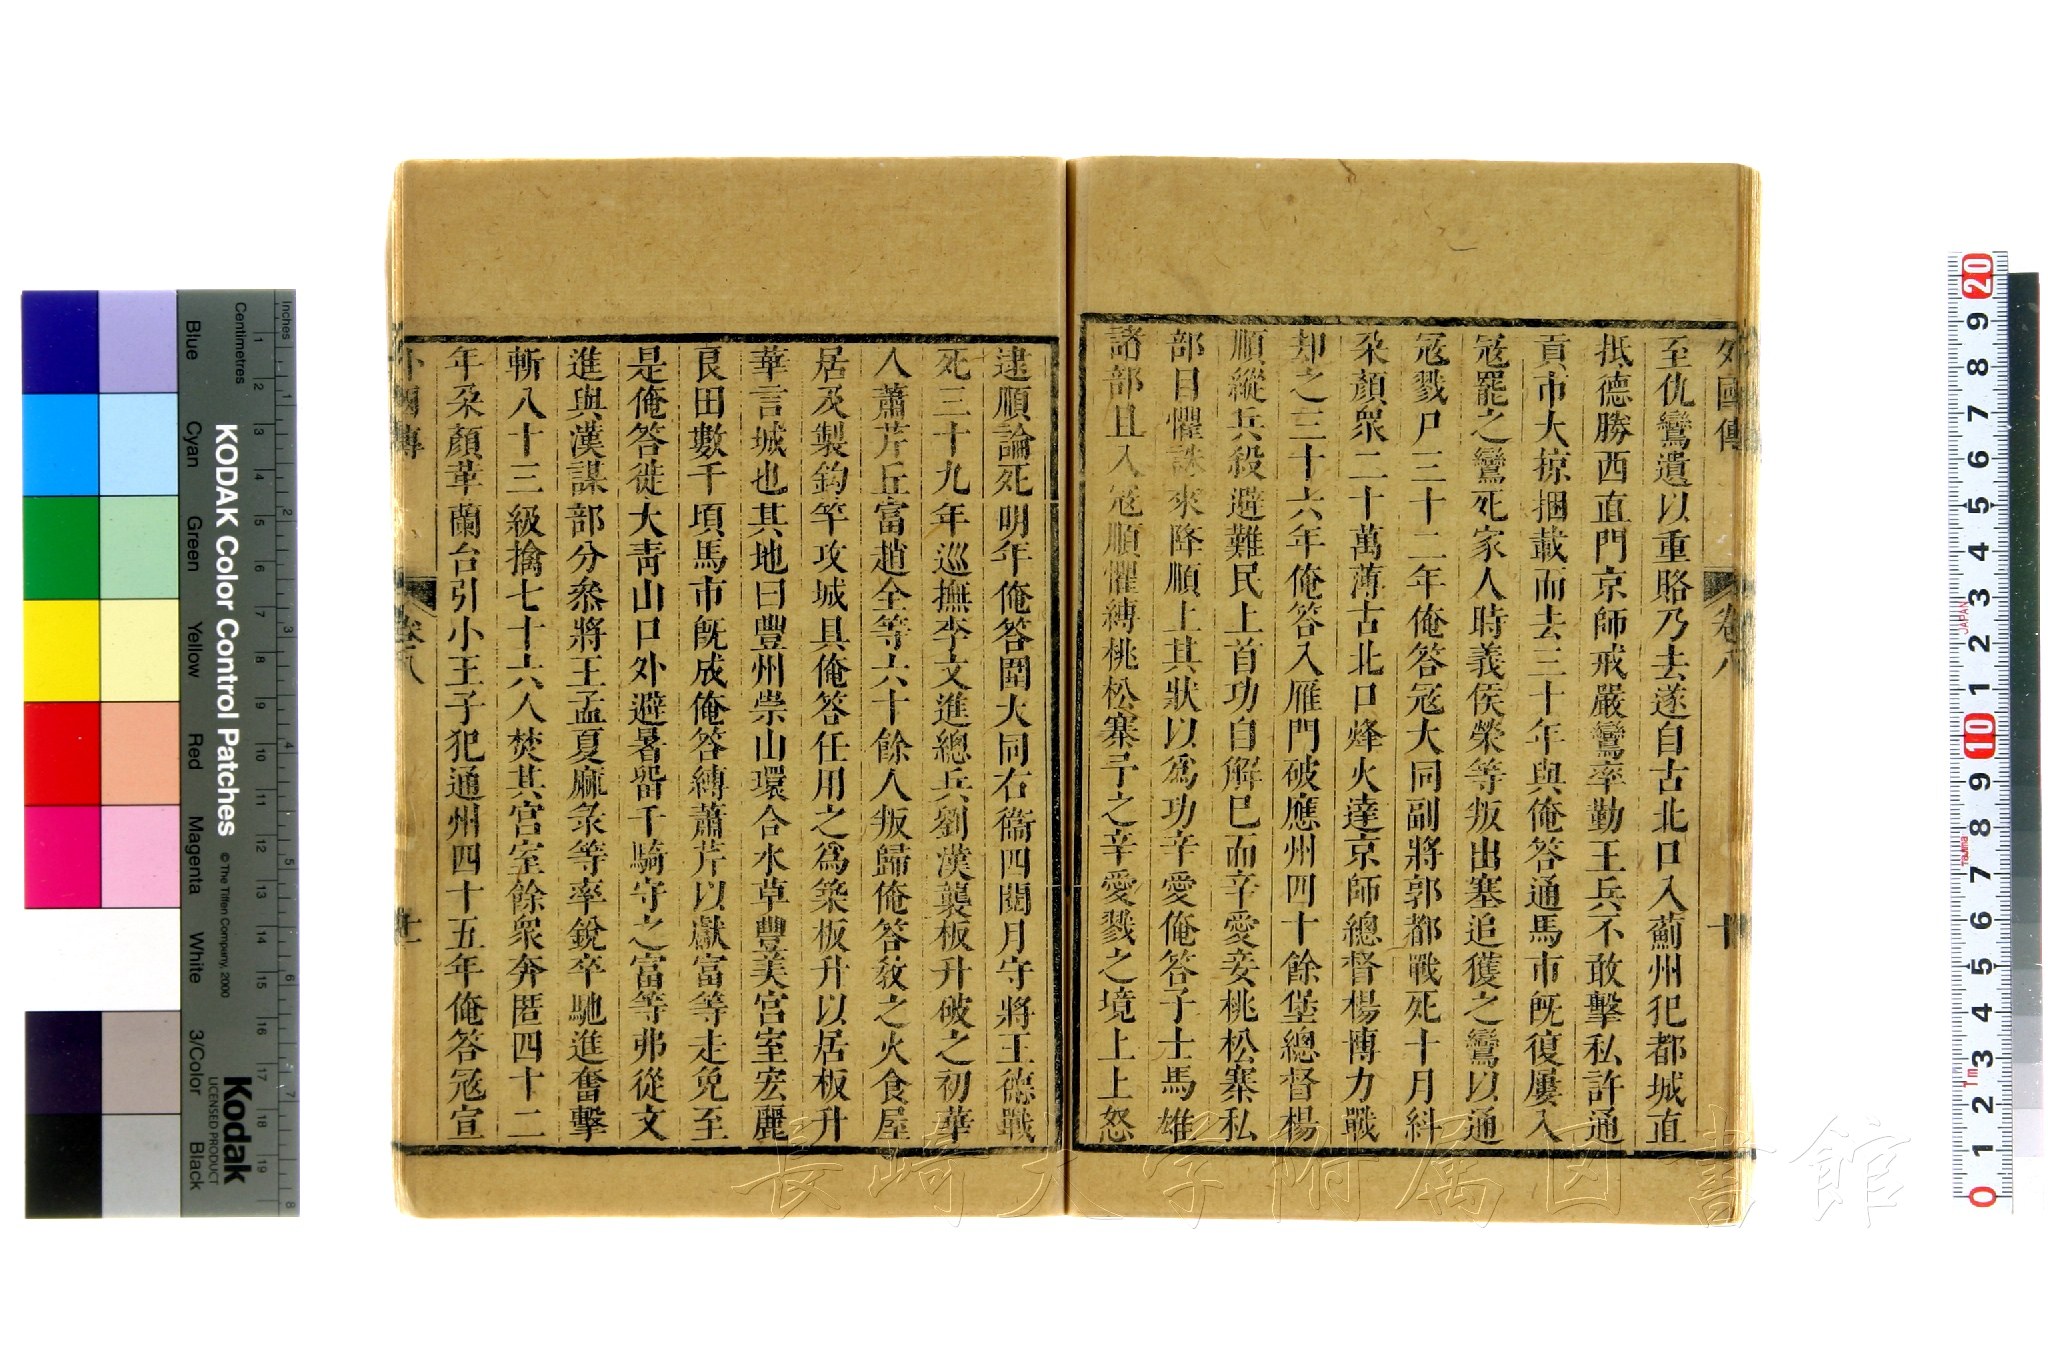 外國傳 卷八 十
至仇鸞遺以重賂乃去遂自古北口入薊州犯都城直
抵德勝西直門京師戒嚴鸞率勤王兵不敢擊私許通
貢市大掠捆載而去三十年與俺答通馬市旣復屢入
寇罷之鸞死家人時義侯榮等叛出塞追獲之鸞以通
寇戮尸三十二年俺答寇大同副將郭都戰死十月糾
朶顏衆二十萬薄古北口烽火達京師總督楊博力戰
却之三十六年俺答入雁門破應州四十餘堡總督楊
順縱兵殺避難民上首功自解已而辛愛妾桃松寨私
部目懼誅來降順上其狀以爲功辛愛俺答子士馬雄
諸部且入寇順懼縛桃松寨予之辛愛戮之境上上怒
逮順論死明年俺答圍大同右衞四閱月守將王德戰
死三十九年巡撫李文進總兵劉漢襲板升破之初華
人蕭芹丘富趙全等六十餘人叛歸俺答敎之火食屋
居及製鈎竿攻城具俺答任用之爲築板升以居板升
華言城也其地曰豐州崇山環合水草豐美宮室宏麗
良田數千頃馬市旣成俺答縛蕭芹以獻富等走免至
是俺答徙大靑山口外避暑留千騎守之富等弗從文
進與漢謀部分叅將王孟夏麻彔等率銳卒馳進奮擊
斬八十三級擒七十六人焚其宮室餘衆奔匿四十二
年朶顏革蘭台引小王子犯通州四十五年俺答寇宣
外國傳 卷八 十一
長崎大学附属図書館
KODAK Color Control Patches
© The Tiffen Company, 2000
Kodak
LICENSED PRODUCT
Inches
Centimetres
Blue Cyan Green Yellow Red Magenta White 3/Color Black
1 2 3 4 5 6 7 8
1 2 3 4 5 6 7 8 9 10 11 12 13 14 15 16 17 18 19
20 9 8 7 6 5 4 3 2 1 10 9 8 7 6 5 4 3 2 1 0
JAPAN
Tajima
1m